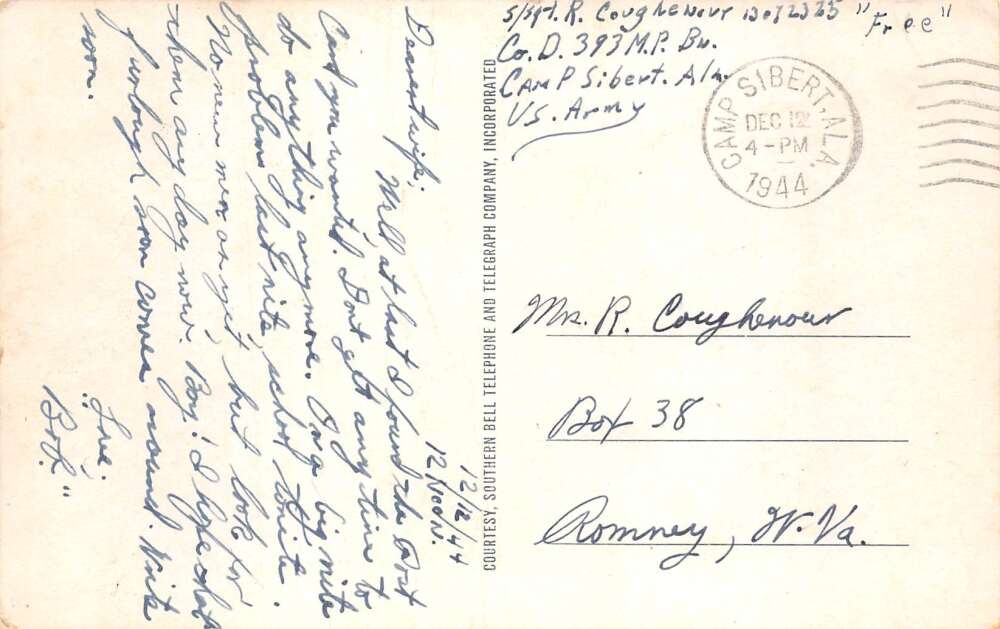 12/12/44
12 Noon.
Dearest wife;
Well, at last I found the Post
Card you wanted. Don't get any time to
do anything anymore. Only big nite
problems last nite, school tonite.
No new men as yet, but look for
them any day now. Boy! I hope that
furlough soon comes around. Write
soon.
"Love.
Bob."
COURTESY, SOUTHERN BELL TELEPHONE AND TELEGRAPH COMPANY, INCORPORATED
S/Sgt. R. Coughenour
"Free"
Co. D. 393 M.P. Bn.
Camp Sibert. Ala.
US. Army
CAMP SIBERT, ALA.
DEC 12
4-PM
1944
Mrs. R. Coughenour
Box 38
Romney, W. Va.